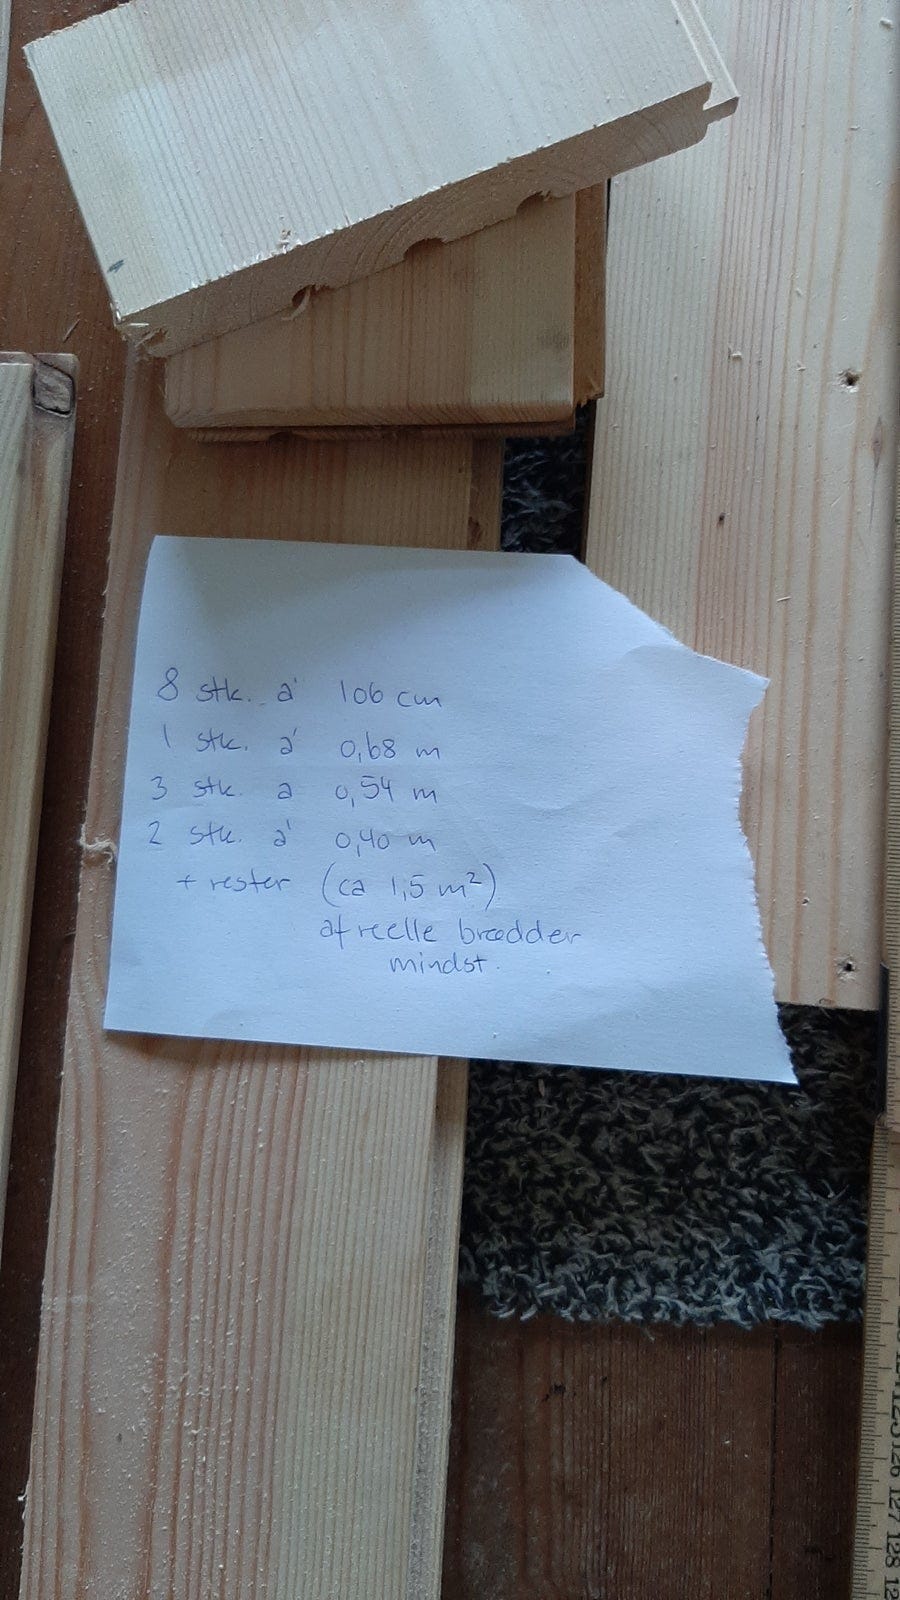 8 stk. á 106 cm
1 stk. á 0,68 m
3 stk. a 0,54 m
2 stk. á 0,40 m
+ rester (ca 1,5 m²)
af reelle brædder
mindst.
125 126 127 128 12